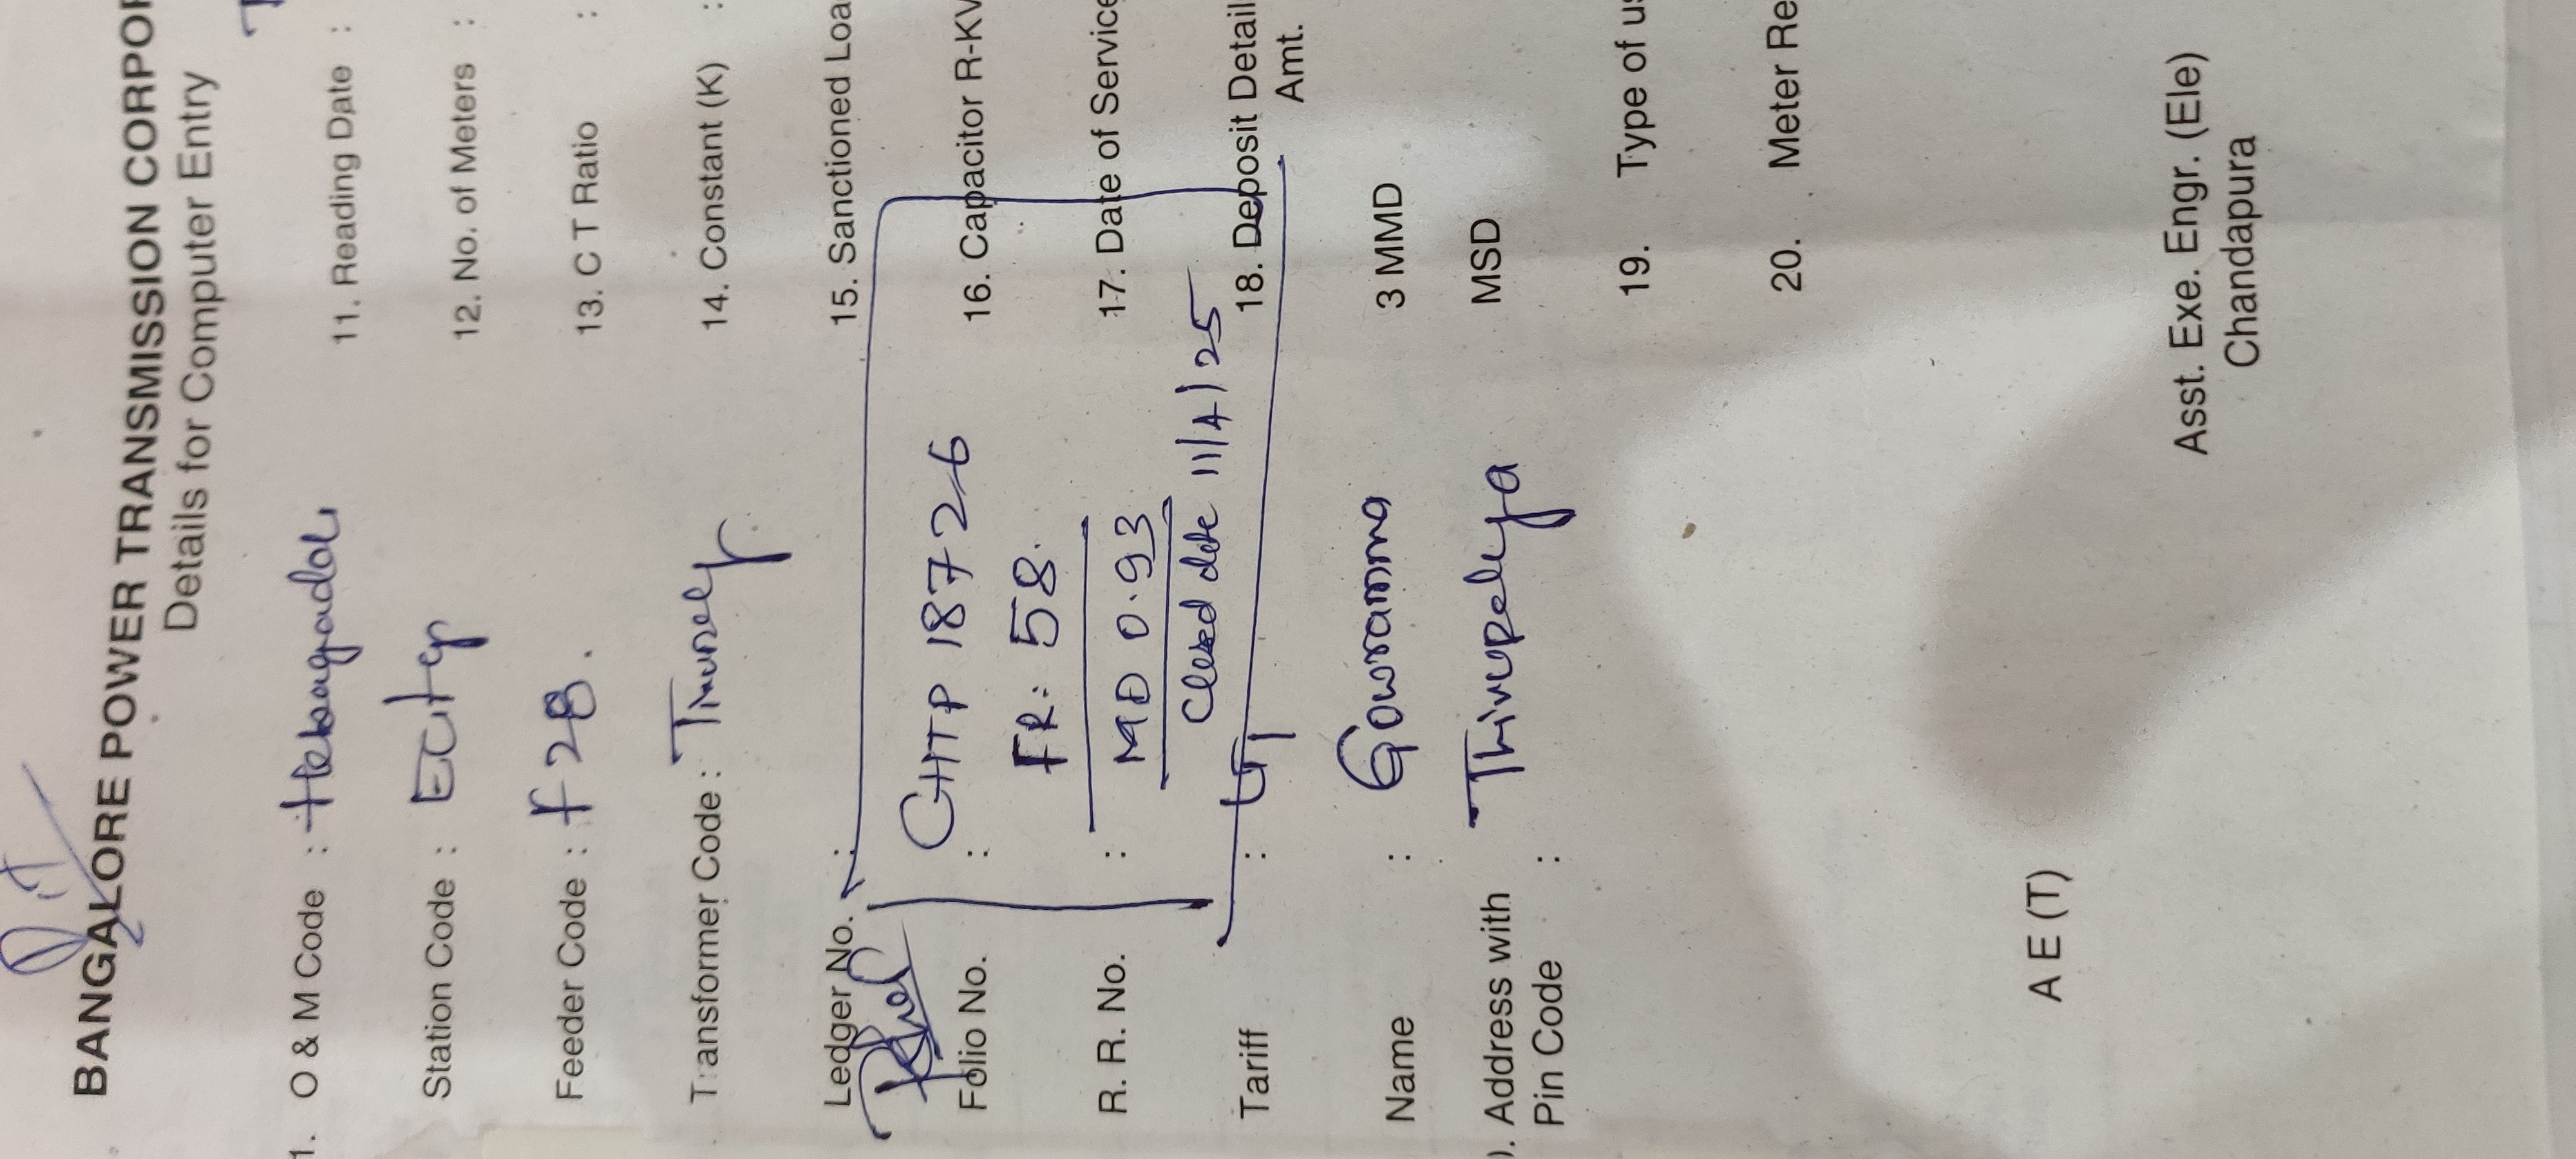 BANGALORE POWER TRANSMISSION CORPOR
Details for Computer Entry
1. O & M Code : Hebbagodi 11. Reading Date :
Station Code : E city 12. No. of Meters :
Feeder Code : F 28. 13. C T Ratio :
Transformer Code : 14. Constant (K) :
Ledger No. : 15. Sanctioned Loa
Folio No. : CHTP 18726 16. Capacitor R-KV
FR: 58.
R. R. No. : MD 0.93 17. Date of Service
Closed date 11/4/25
Tariff : 18. Deposit Detail
Amt.
Name : Gowramma 3 MMD
). Address with Thirupalya MSD
Pin Code :
19. Type of us
20. Meter Re
A E (T) Asst. Exe. Engr. (Ele)
Chandapura